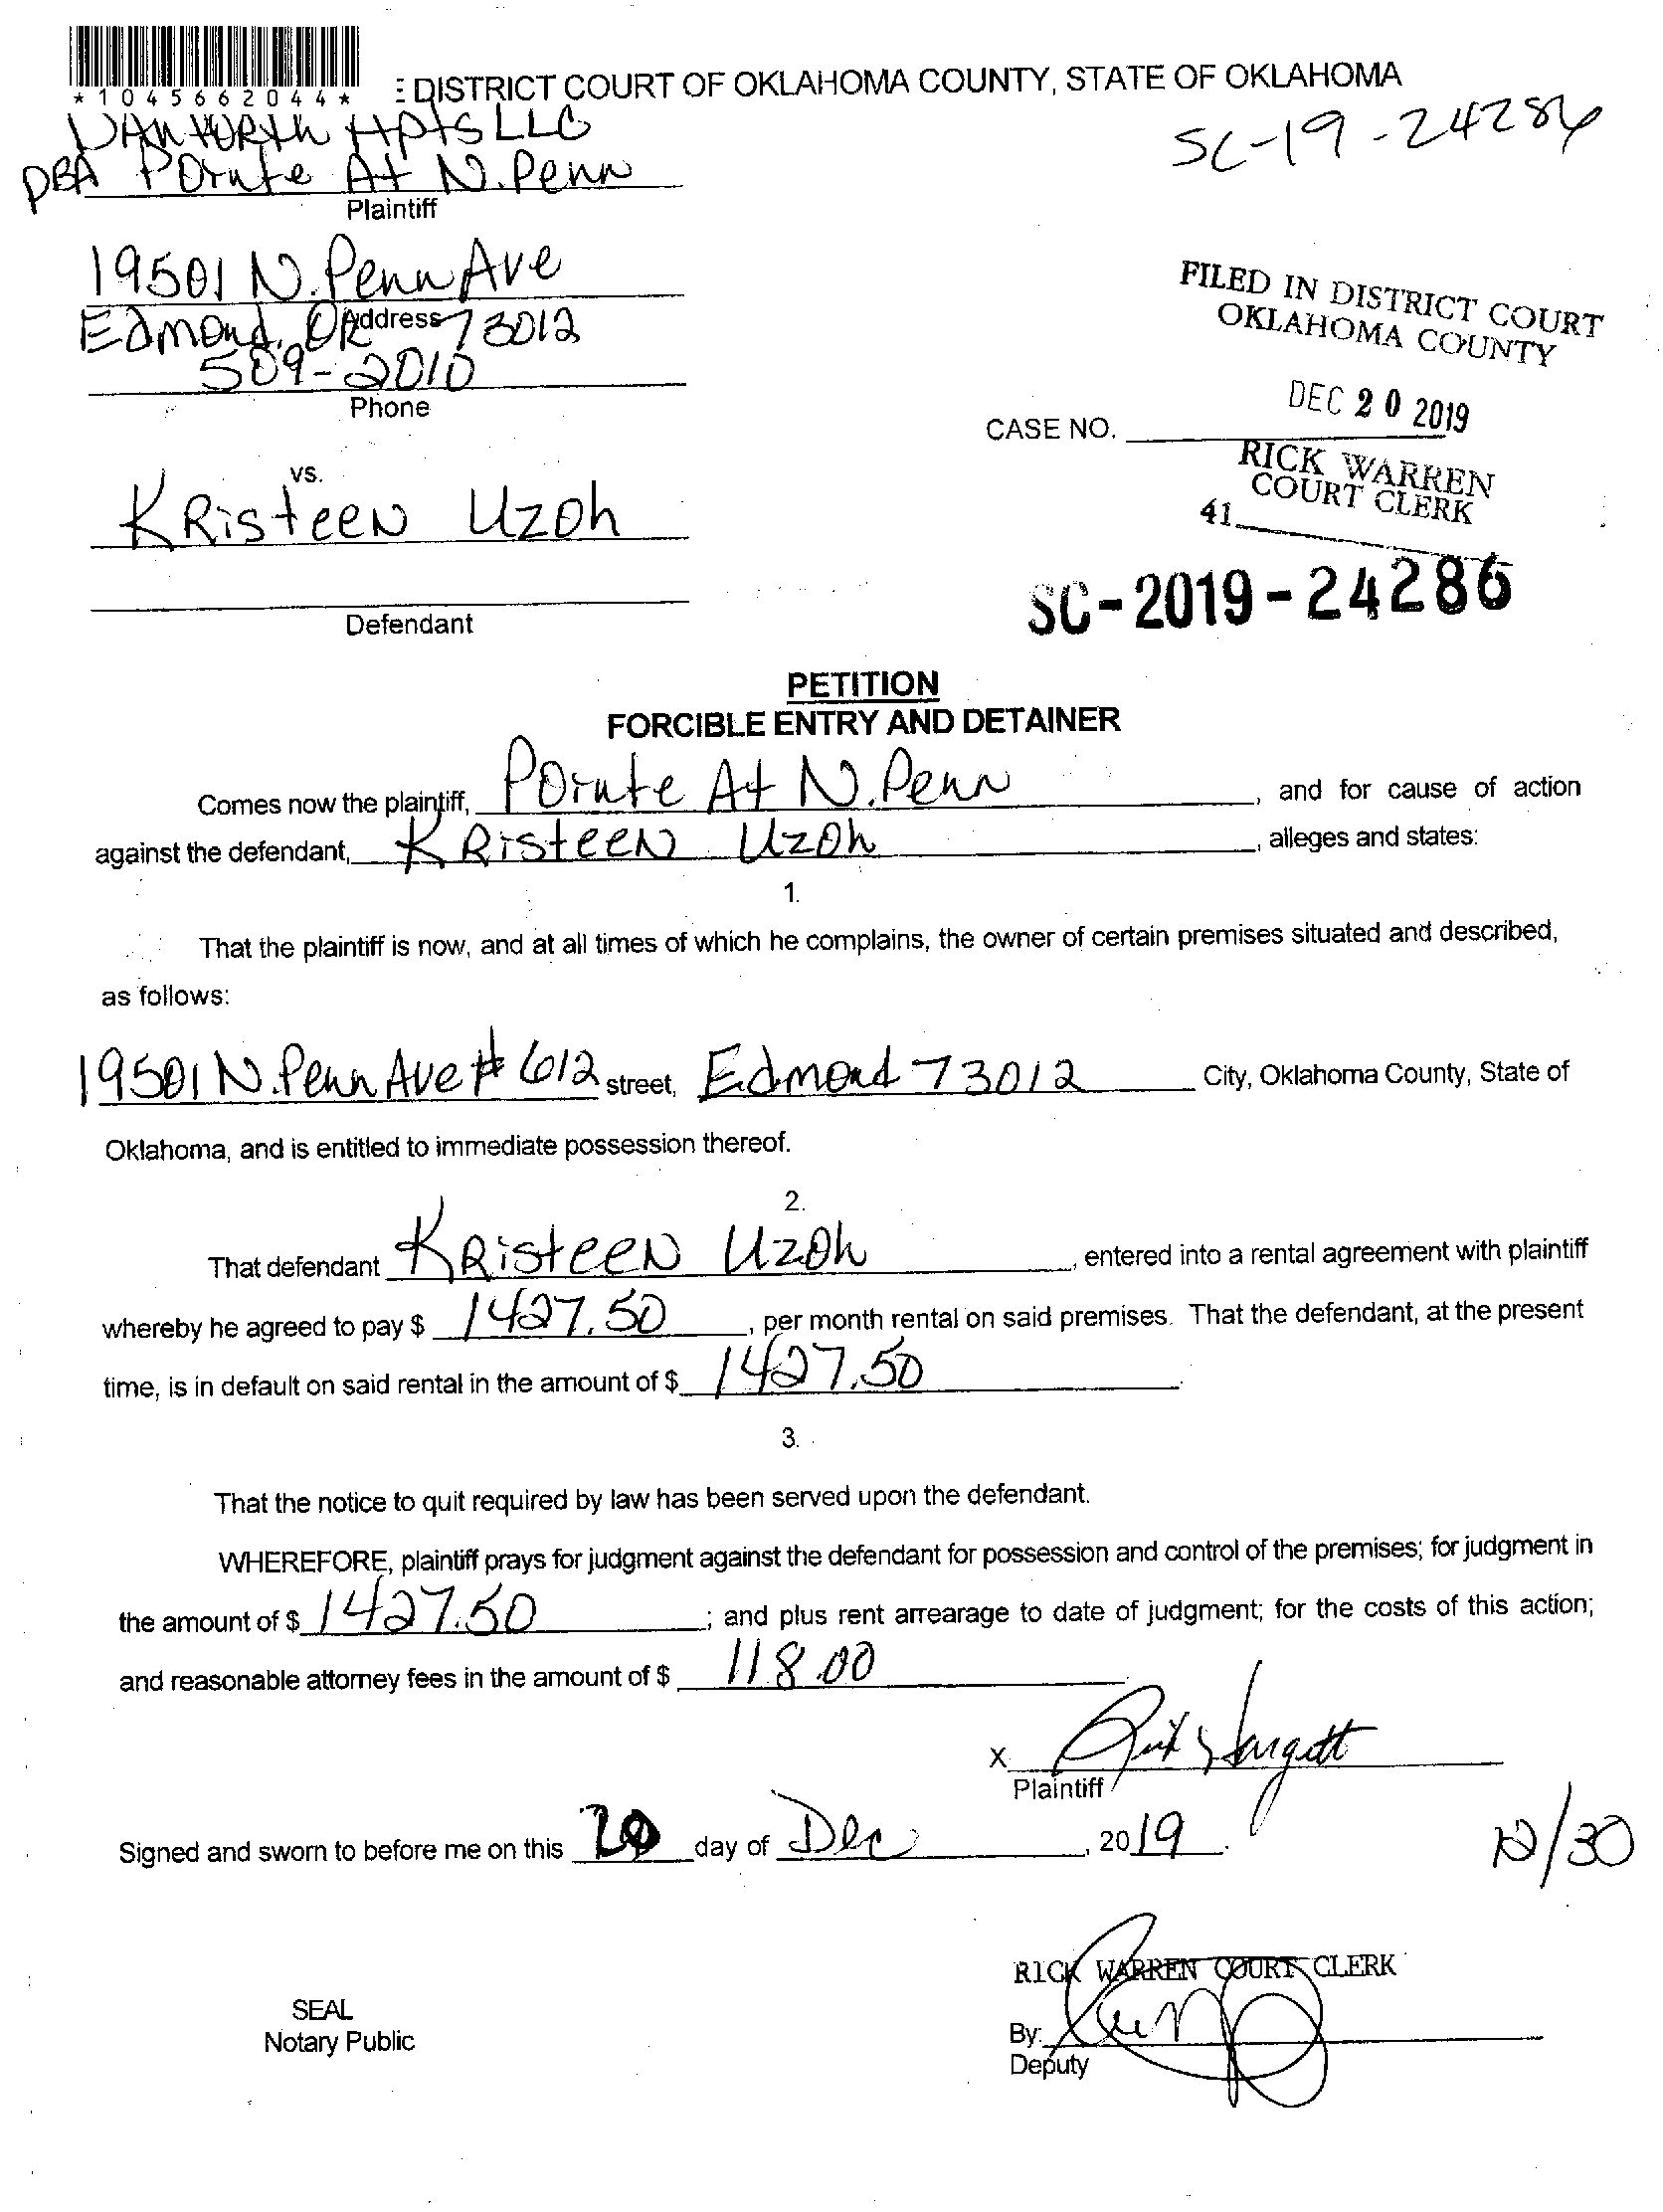 *1045662044*
E DISTRICT COURT OF OKLAHOMA COUNTY, STATE OF OKLAHOMA
SC-19-24286
DANFORTH Apts LLC
DBA Pointe At N. Penn
Plaintiff
19501 N. Penn Ave
Edmond, OK 73012
Address
509-2010
Phone
FILED IN DISTRICT COURT
OKLAHOMA COUNTY
DEC 20 2019
CASE NO.
RICK WARREN
COURT CLERK
41
vs.
KRisteen Uzoh
Defendant
SC-2019-24286
PETITION
FORCIBLE ENTRY AND DETAINER
Comes now the plaintiff, Pointe At N. Penn, and for cause of action
against the defendant, KRisteen Uzoh, alleges and states:
1.
That the plaintiff is now, and at all times of which he complains, the owner of certain premises situated and described,
as follows:
19501 N. Penn Ave # 612 street, Edmond 73012 City, Oklahoma County, State of
Oklahoma, and is entitled to immediate possession thereof.
2.
That defendant KRisteen Uzoh, entered into a rental agreement with plaintiff
whereby he agreed to pay $ 1427.50, per month rental on said premises. That the defendant, at the present
time, is in default on said rental in the amount of $ 1427.50.
3.
That the notice to quit required by law has been served upon the defendant.
WHEREFORE, plaintiff prays for judgment against the defendant for possession and control of the premises; for judgment in
the amount of $ 1427.50; and plus rent arrearage to date of judgment; for the costs of this action;
and reasonable attorney fees in the amount of $ 118.00
X
Plaintiff
Signed and sworn to before me on this 20 day of Dec, 2019.
12/30
RICK WARREN COURT CLERK
SEAL
Notary Public
By:
Deputy